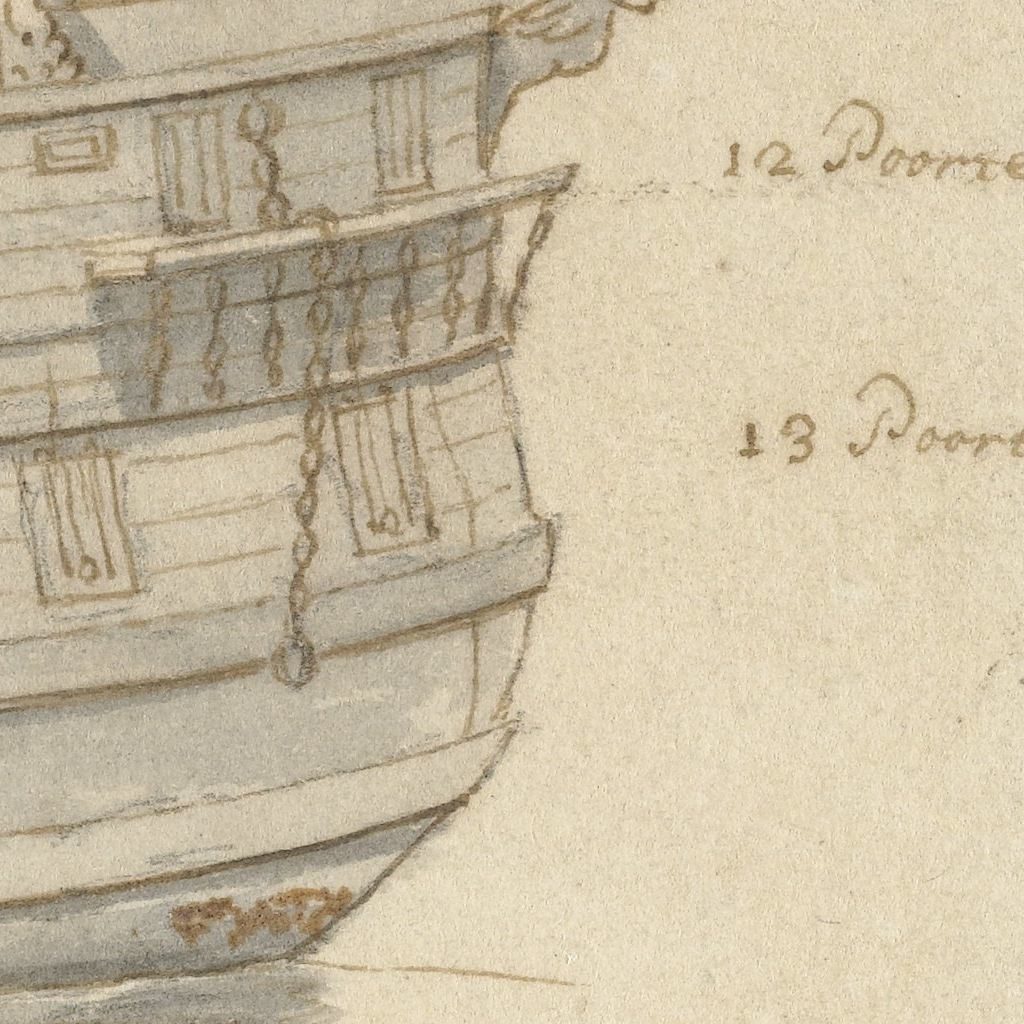 12 Poorte
13 Poorte